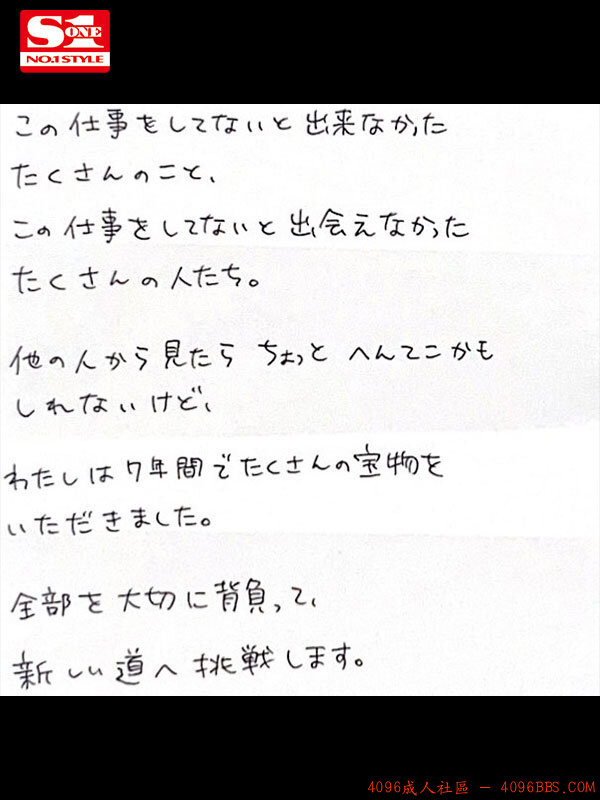 S1
ONE
NO.1 STYLE
この仕事をしてないと出来なかった
たくさんのこと、
この仕事をしてないと出会えなかった
たくさんの人たち。
他の人から見たら ちょっと へんてこかも
しれないけど、
わたしは7年間でたくさんの宝物を
いただきました。
全部を大切に背負って、
新しい道へ挑戦します。
4096成人社區 - 4096BBS.COM